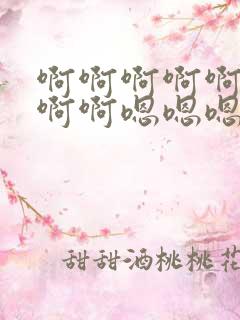 啊啊啊啊啊
啊啊嗯嗯嗯
甜甜酒桃桃花